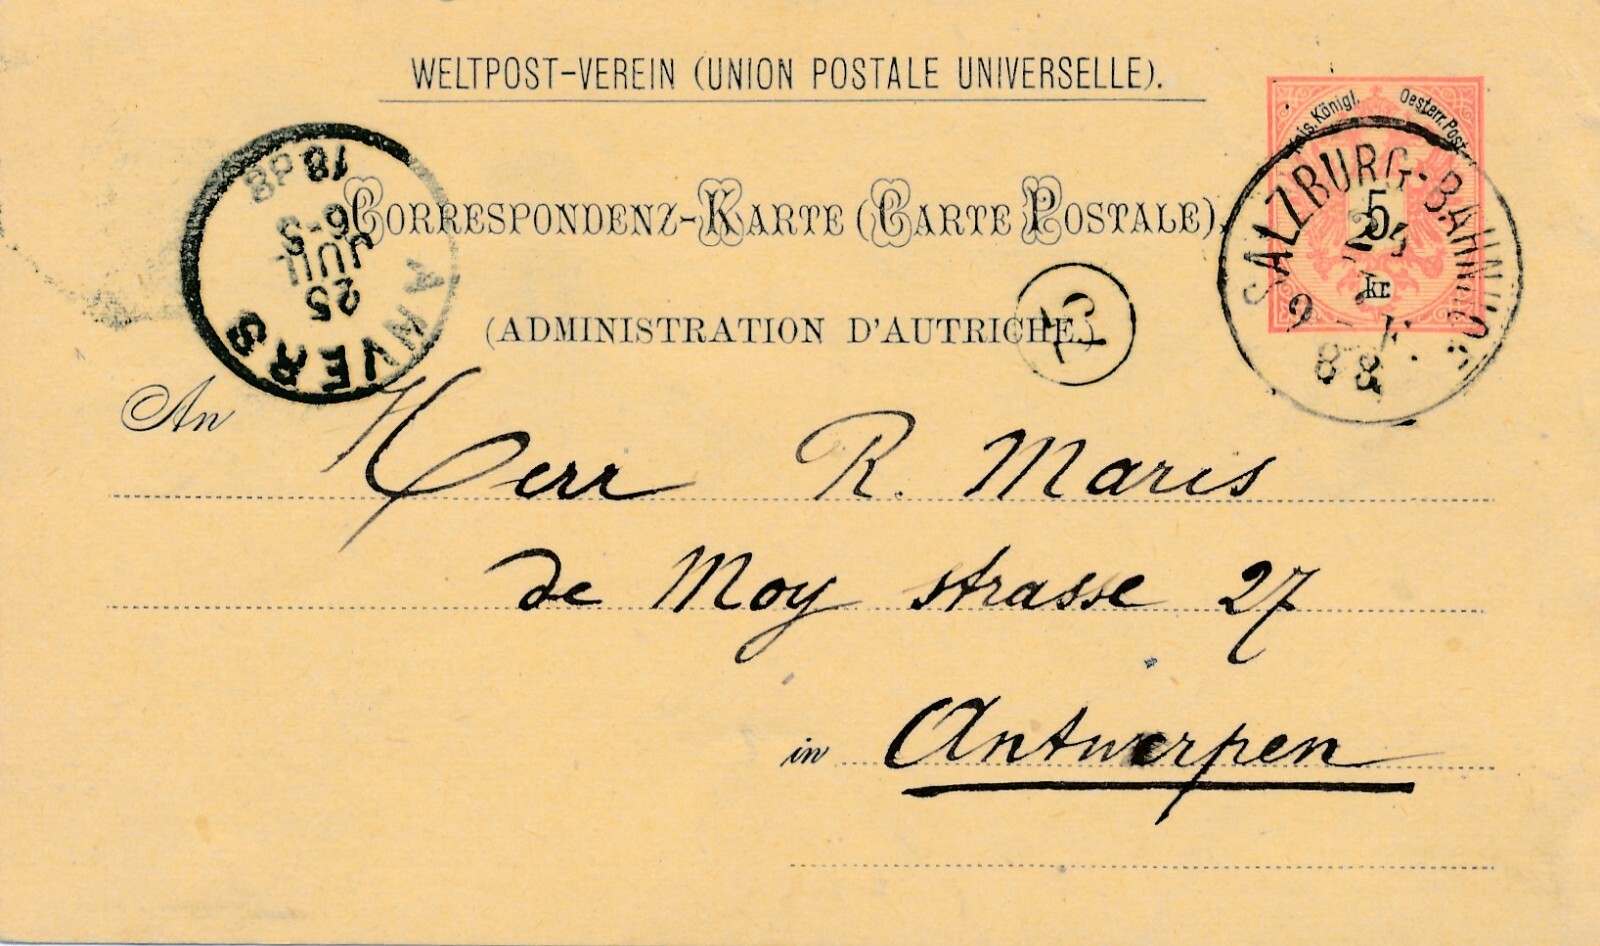 WELTPOST-VEREIN (UNION POSTALE UNIVERSELLE).
Kais. Königl. Oesterr. Post
5
kr.
CORRESPONDENZ-KARTE (CARTE POSTALE).
(ADMINISTRATION D'AUTRICHE.)
ANVERS
25
JUIL
6-S
1888
SALZBURG-BAHNHOF
9
88
An Herr R. Maris
de Moy strasse 27
in Antwerpen